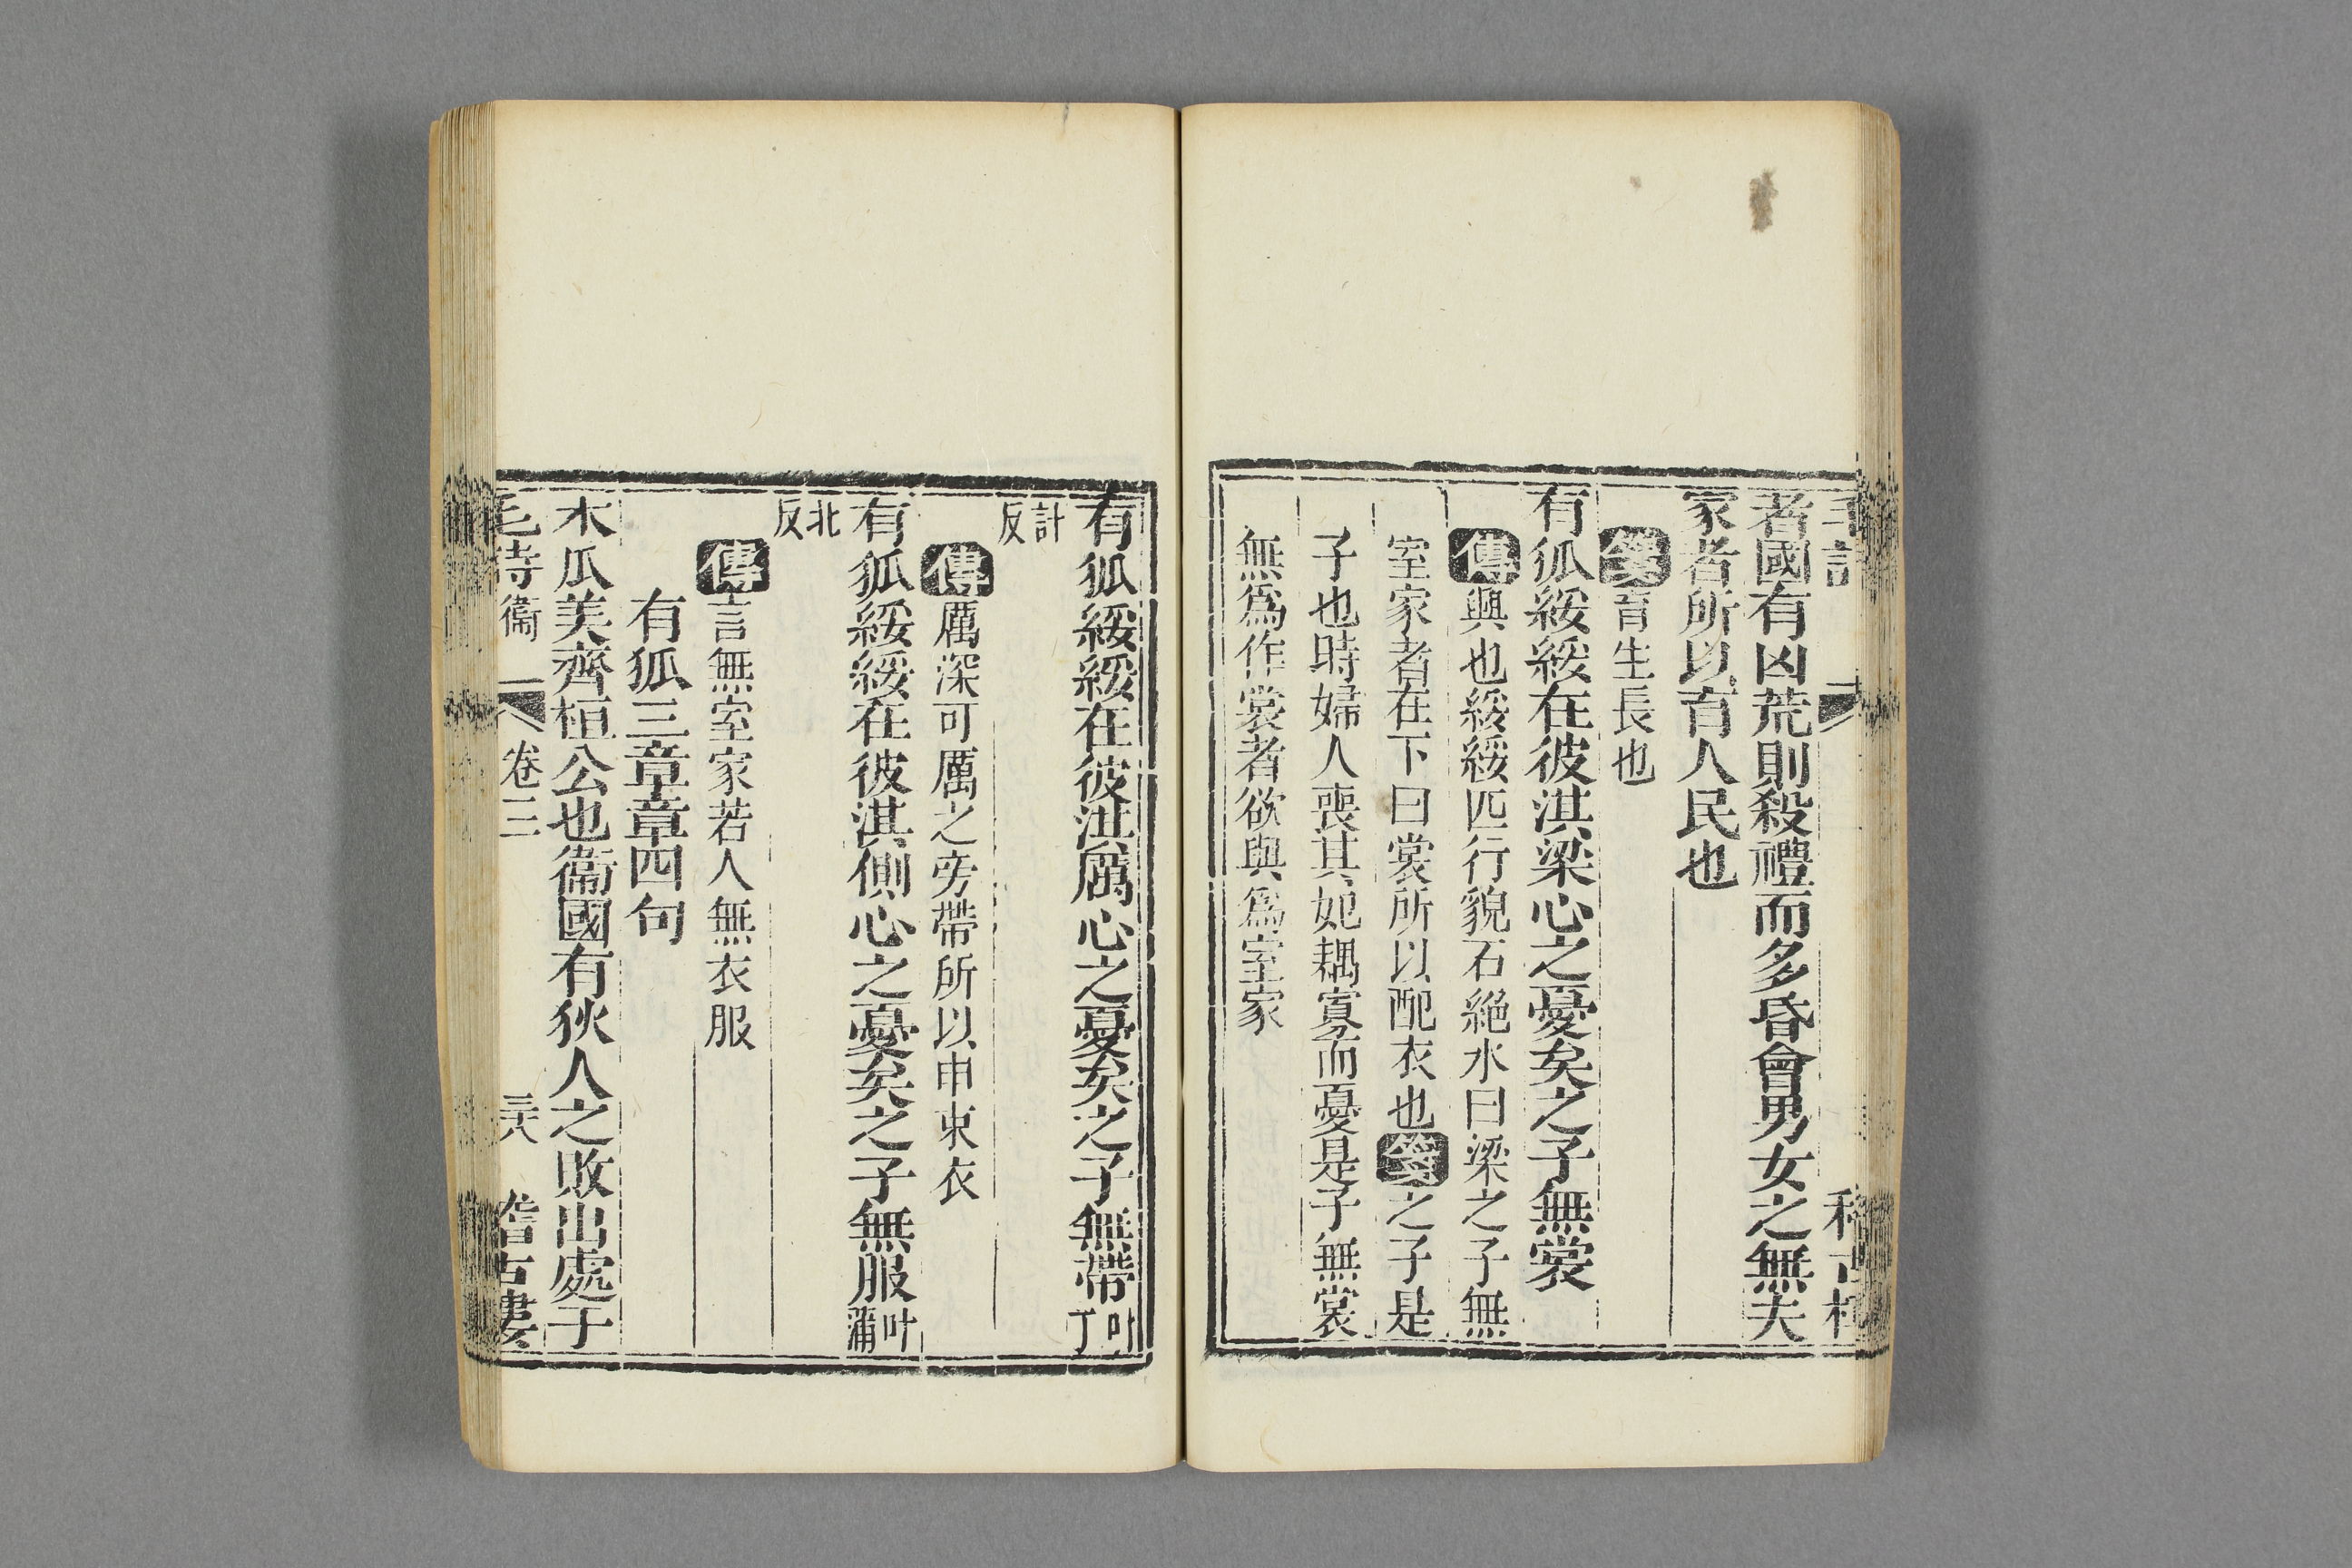 者國有凶荒則殺禮而多昏會男女之無夫
家者所以育人民也
箋育生長也
有狐綏綏在彼淇梁心之憂矣之子無裳
傳興也綏綏匹行貌石絶水曰梁之子無
室家者在下曰裳所以配衣也箋之子是
子也時婦人喪其妃耦寡而憂是子無裳
無爲作裳者欲與爲室家
有狐綏綏在彼淇厲心之憂矣之子無帶叶丁
計反
傳厲深可厲之旁帶所以申束衣
有狐綏綏在彼淇側心之憂矣之子無服叶蒲
北反
傳言無室家若人無衣服
有狐三章章四句
木瓜美齊桓公也衞國有狄人之敗出處于
毛詩衞 卷三 三八 稽古樓